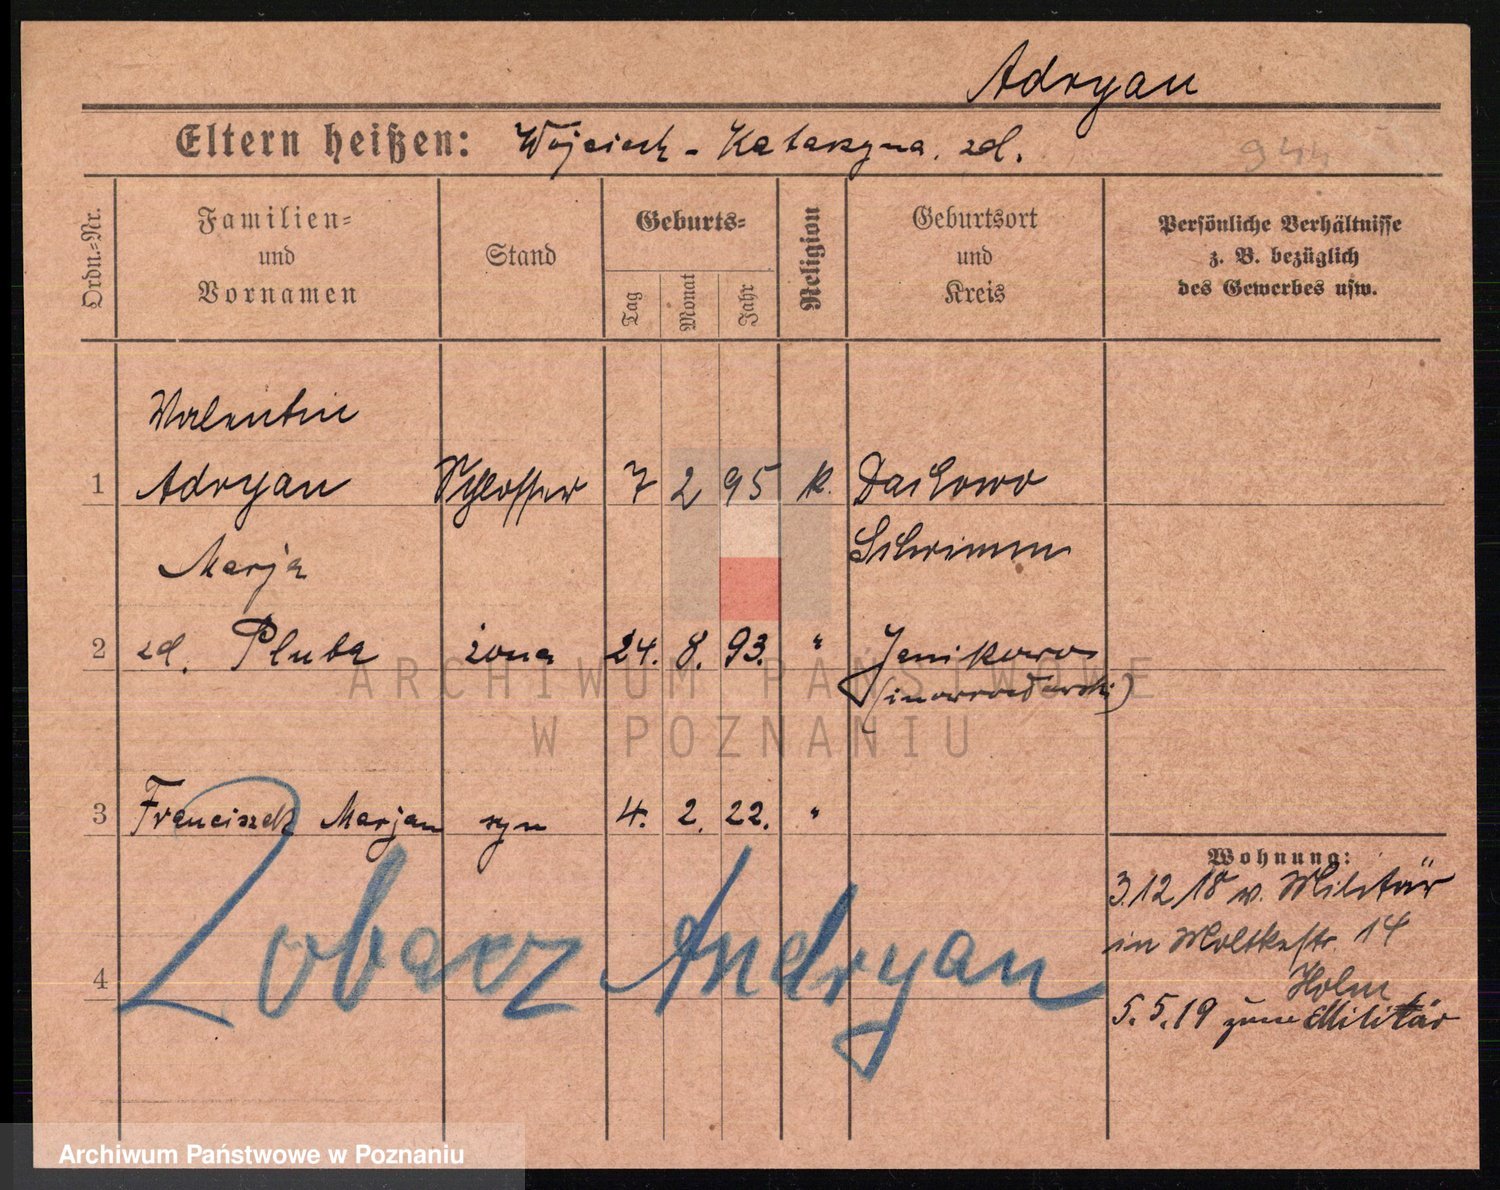 Adryan
Eltern heißen: Wojciech - Katarzyna. zd.
944
Ordn.=Nr.
Familien=
und
Vornamen
Stand
Geburts=
Tag
Monat
Jahr
Religion
Geburtsort
und
Kreis
Persönliche Verhältnisse
z. B. bezüglich
des Gewerbes usw.
Valentin
1 Adryan Schlosser 7 2 95 k. Dachowo
Schrimm
Marja
2 zd. Pluta żona 24. 8. 93. " Janikowo
(inowrocławski)
3 Franciszek Marjan syn 4. 2. 22. "
4 Zobacz Andryan
Wohnung:
3.12.18 v. Militär
in Moltkestr. 14
Holm
5.5.19 zum Militär
ARCHIWUM PAŃSTWOWE
W POZNANIU
Archiwum Państwowe w Poznaniu